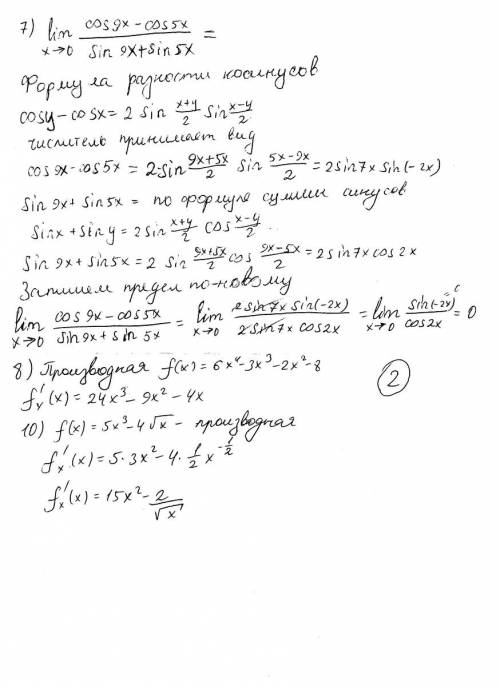 7) lim x→0 (cos9x − cos5x)/(sin 9x + sin 5x) =
Формула разности косинусов
cosy − cosx = 2 sin (x+y)/2 sin (x−y)/2
числитель принимает вид
cos 9x − cos 5x = 2·sin (9x+5x)/2 sin (5x−9x)/2 = 2sin7x sin(−2x)
sin 9x + sin 5x = по формуле суммы синусов
sinx + siny = 2sin (x+y)/2 cos (x−y)/2 ..
sin 9x + sin 5x = 2 sin (9x+5x)/2 cos (9x−5x)/2 = 2 sin7x cos 2x
Запишем предел по-новому
lim x→0 (cos 9x − cos5x)/(sin 9x + sin 5x) = lim x→0 (2 sin 7x sin(−2x))/(2 sin 7x cos2x) = lim x→0 sin(−2x)/cos 2x = 0
8) Производная f(x) = 6x⁴ − 3x³ − 2x² − 8
f'ₓ(x) = 24x³ − 9x² − 4x
2
10) f(x) = 5x³ − 4√x − производная
f'ₓ(x) = 5·3x² − 4·1/2 x^(−1/2)
f'ₓ(x) = 15x² − 2/√x